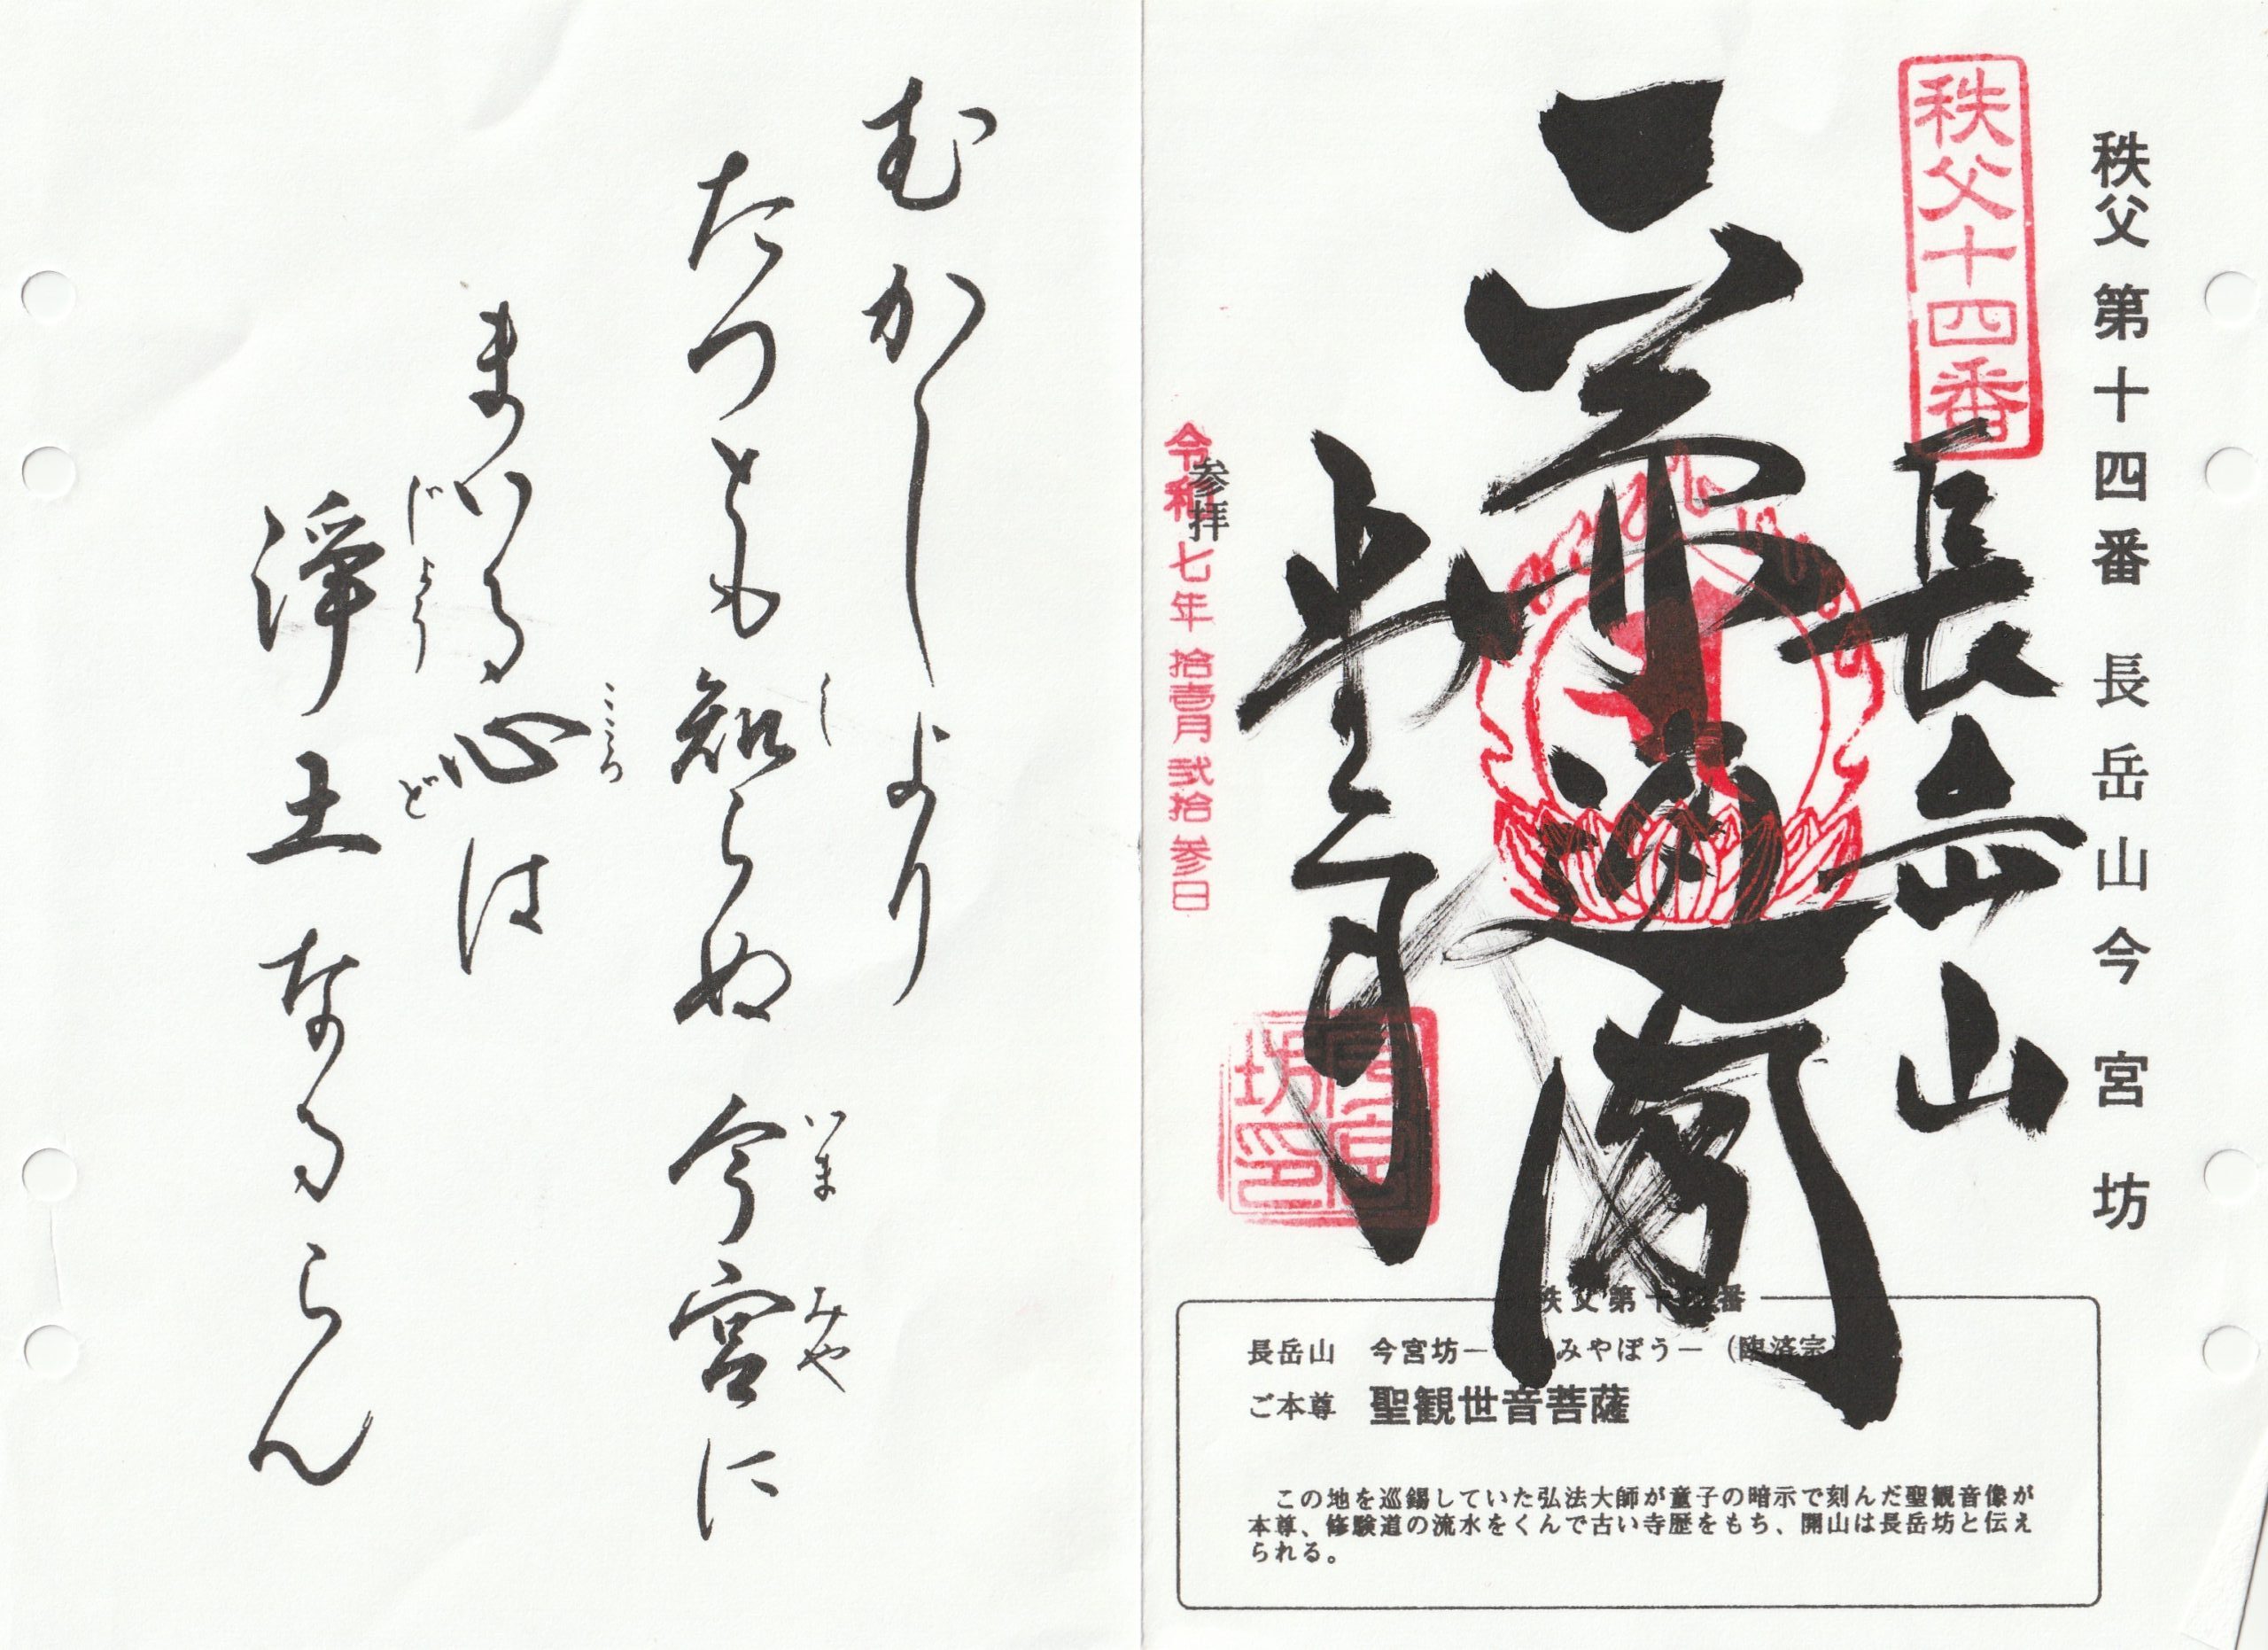 秩父第十四番 長岳山今宮坊
秩父十四番
長岳山
今宮坊
坊印
参拝
令和七年拾壱月弐拾参日
秩父第十四番
長岳山 今宮坊― みやぼう―（臨済宗）
ご本尊 聖観世音菩薩
この地を巡錫していた弘法大師が童子の暗示で刻んだ聖観音像が
本尊、修験道の流水をくんで古い寺歴をもち、開山は長岳坊と伝え
られる。
むかしより
たつとも知らぬ今宮に
し いま みや
まいる心は
こころ
浄土なるらん
じょう ど